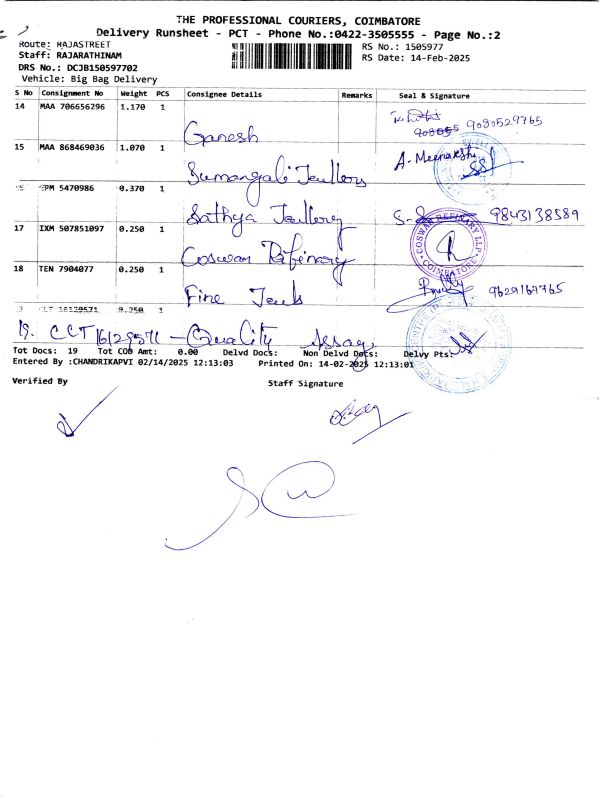 THE PROFESSIONAL COURIERS, COIMBATORE
Delivery Runsheet - PCT - Phone No.:0422-3505555 - Page No.:2
Route: RAJASTREET
RS No.: 1505977
Staff: RAJARATHINAM
RS Date: 14-Feb-2025
DRS No.: DCJB150597702
Vehicle: Big Bag Delivery
S No Consignment No Weight PCS Consignee Details Remarks Seal & Signature
14 MAA 706656296 1.170 1 Ganesh 9080529765
15 MAA 868469036 1.070 1 Sumangali Jewllery A. Meenakshi
PM 5470986 0.370 1 Sathya Jewllery 9843138589
17 IXM 507851097 0.250 1 Coswan Refinary COSWAN REFINARY LLP COIMBATORE
18 TEN 7904077 0.250 1 Fine Jewels 9629167765
0.250 1
19. CCT 16129571 - Quality Assay
Tot Docs: 19 Tot COD Amt: 0.00 Delvd Docs: Non Delvd Docs: Delvy Pts:
Entered By :CHANDRIKAPVI 02/14/2025 12:13:03 Printed On: 14-02-2025 12:13:01
Verified By
Staff Signature